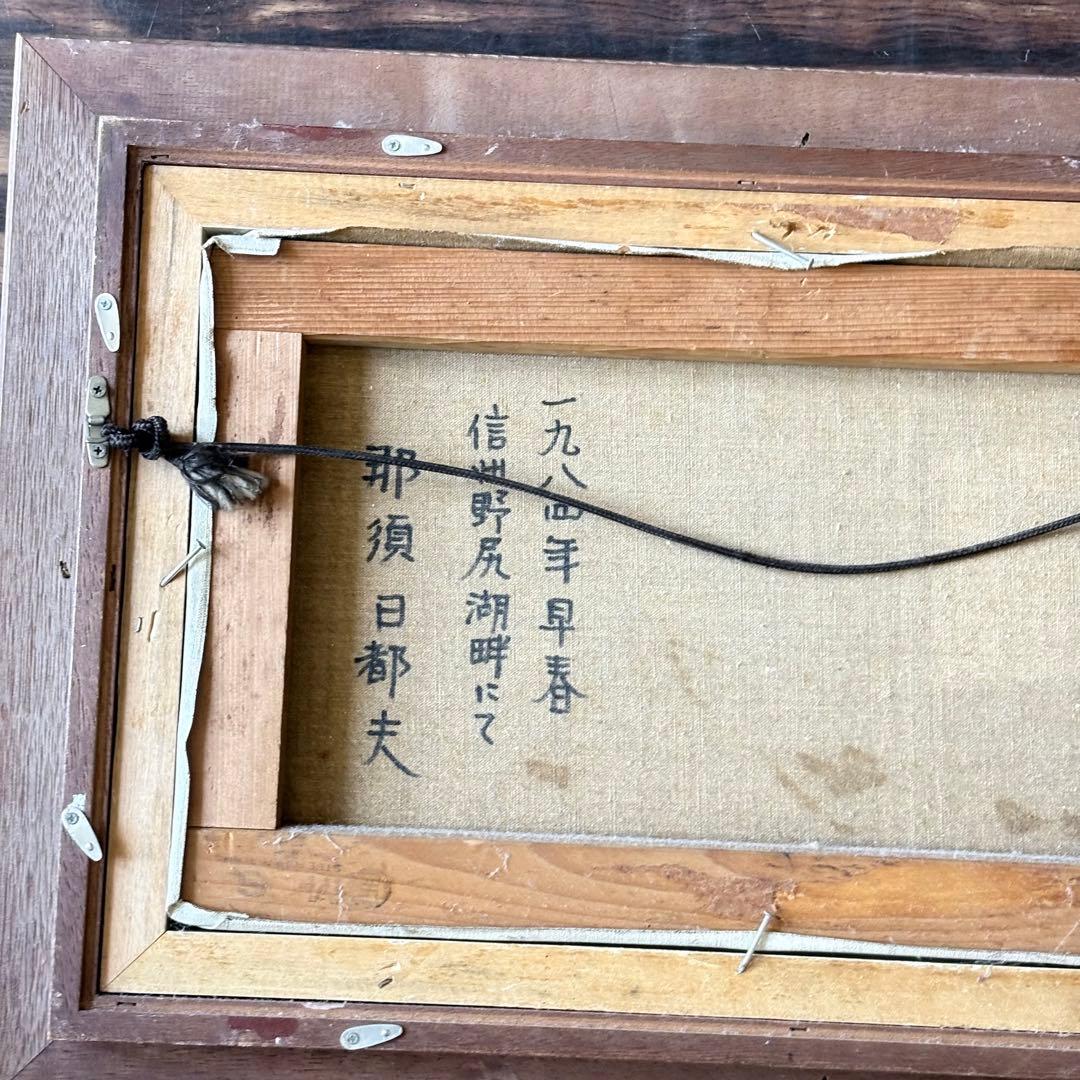 一九八四年早春
信州野尻湖畔にて
那須日都夫